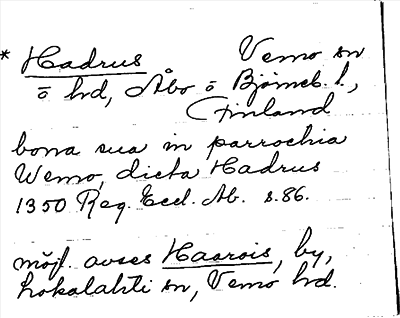 * Hadrus Vemo sn
o hd, Åbo o Björneb. l.,
Finland
bona sua in parrochia
Wemo, dicta Hadrus
1350 Reg. Eccl. Ab. s. 86.
möjl. avses Haarois, by,
Lokalahti sn, Vemo hd.